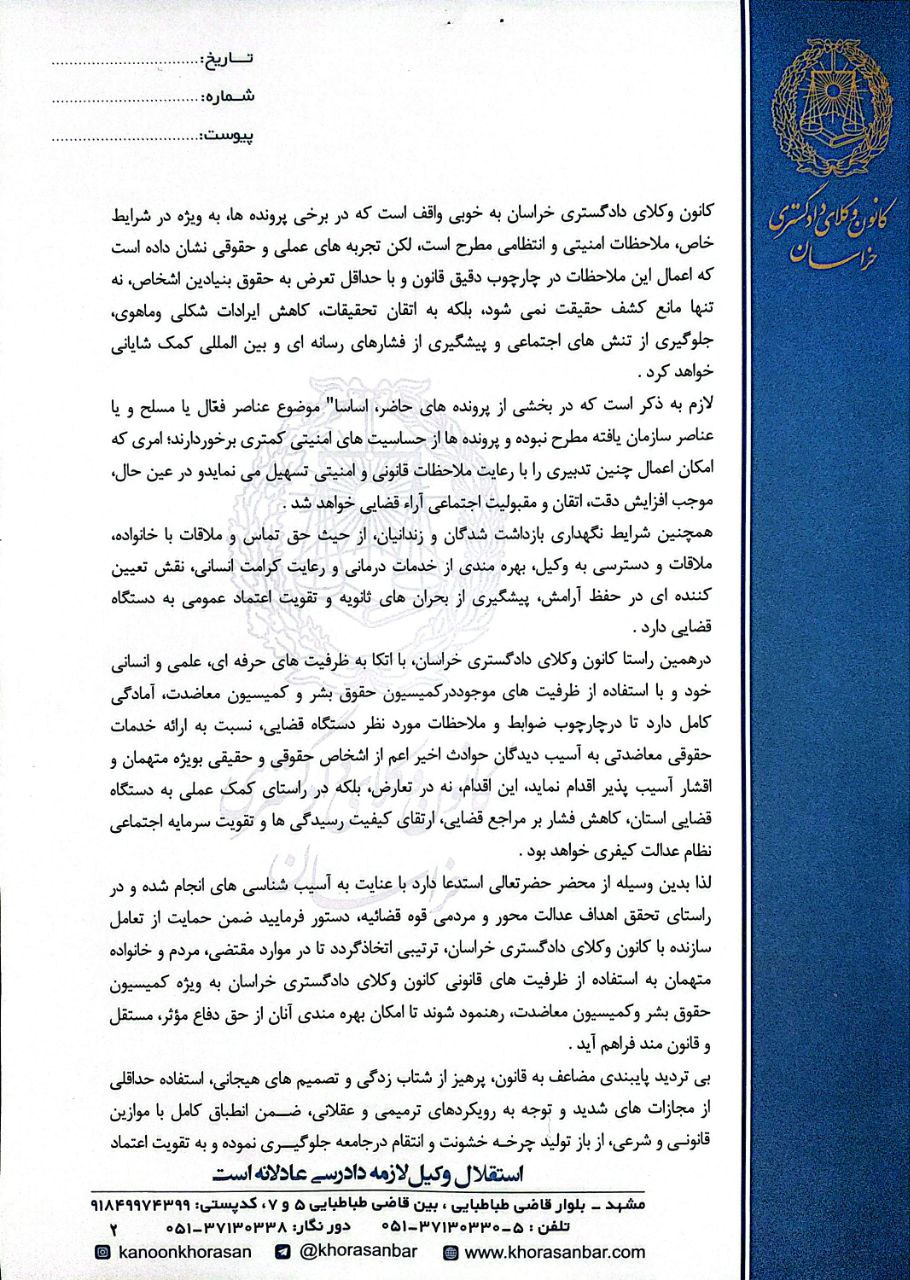 تـــاریخ:
شـــماره:
پیوست:
کانون وکلای دادگستری
خراسان
کانون وکلای دادگستری خراسان به خوبی واقف است که در برخی پرونده ها، به ویژه در شرایط
خاص، ملاحظات امنیتی و انتظامی مطرح است، لکن تجربه های عملی و حقوقی نشان داده است
که اعمال این ملاحظات در چارچوب دقیق قانون و با حداقل تعرض به حقوق بنیادین اشخاص، نه
تنها مانع کشف حقیقت نمی شود، بلکه به اتقان تحقیقات، کاهش ایرادات شکلی وماهوی،
جلوگیری از تنش های اجتماعی و پیشگیری از فشارهای رسانه ای و بین المللی کمک شایانی
خواهد کرد .
لازم به ذکر است که در بخشی از پرونده های حاضر، اساسا" موضوع عناصر فعّال یا مسلح و یا
عناصر سازمان یافته مطرح نبوده و پرونده ها از حساسیت های امنیتی کمتری برخوردارند؛ امری که
امکان اعمال چنین تدبیری را با رعایت ملاحظات قانونی و امنیتی تسهیل می نمایدو در عین حال،
موجب افزایش دقت، اتقان و مقبولیت اجتماعی آراء قضایی خواهد شد .
همچنین شرایط نگهداری بازداشت شدگان و زندانیان، از حیث حق تماس و ملاقات با خانواده،
ملاقات و دسترسی به وکیل، بهره مندی از خدمات درمانی و رعایت کرامت انسانی، نقش تعیین
کننده ای در حفظ آرامش، پیشگیری از بحران های ثانویه و تقویت اعتماد عمومی به دستگاه
قضایی دارد .
درهمین راستا کانون وکلای دادگستری خراسان، با اتکا به ظرفیت های حرفه ای، علمی و انسانی
خود و با استفاده از ظرفیت های موجوددرکمیسیون حقوق بشر و کمیسیون معاضدت، آمادگی
کامل دارد تا درچارچوب ضوابط و ملاحظات مورد نظر دستگاه قضایی، نسبت به ارائه خدمات
حقوقی معاضدتی به آسیب دیدگان حوادث اخیر اعم از اشخاص حقوقی و حقیقی بویژه متهمان و
اقشار آسیب پذیر اقدام نماید، این اقدام، نه در تعارض، بلکه در راستای کمک عملی به دستگاه
قضایی استان، کاهش فشار بر مراجع قضایی، ارتقای کیفیت رسیدگی ها و تقویت سرمایه اجتماعی
نظام عدالت کیفری خواهد بود .
لذا بدین وسیله از محضر حضرتعالی استدعا دارد با عنایت به آسیب شناسی های انجام شده و در
راستای تحقق اهداف عدالت محور و مردمی قوه قضائیه، دستور فرمایید ضمن حمایت از تعامل
سازنده با کانون وکلای دادگستری خراسان، ترتیبی اتخاذگردد تا در موارد مقتضی، مردم و خانواده
متهمان به استفاده از ظرفیت های قانونی کانون وکلای دادگستری خراسان به ویژه کمیسیون
حقوق بشر وکمیسیون معاضدت، رهنمود شوند تا امکان بهره مندی آنان از حق دفاع مؤثر، مستقل
و قانون مند فراهم آید .
بی تردید پایبندی مضاعف به قانون، پرهیز از شتاب زدگی و تصمیم های هیجانی، استفاده حداقلی
از مجازات های شدید و توجه به رویکردهای ترمیمی و عقلانی، ضــمن انطباق کامل با موازین
قانونـی و شرعی، از باز تولید چرخـه خشونت و انتقام درجامعه جلوگیـــری نموده و به تقویت اعتماد
استقلال وکیل لازمه دادرسی عادلانه است
مشهد – بلوار قاضی طباطبایی ، بین قاضی طباطبایی ۵ و ۷، کدپستی: ۹۱۸۴۹۹۷۴۳۹۹
تلفن : ۵-۰۵۱-۳۷۱۳۰۳۳۰ دور نگار: ۰۵۱-۳۷۱۳۰۳۳۸
۲
kanoonkhorasan @khorasanbar www.khorasanbar.com